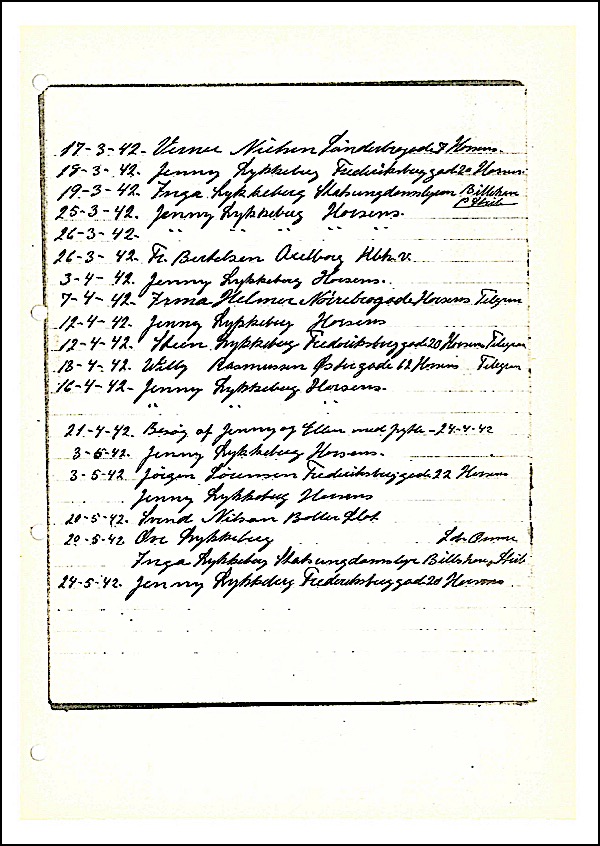 17-3-42. Verner Nielsen Sønderbrogade 7 Horsens.
18-3-42. Jenny Lykkeberg Frederiksberggade 20 Horsens
19-3-42. Inga Lykkeberg Statsungdomslejren Billeshave
P Strib
25-3-42. Jenny Lykkeberg Horsens.
26-3-42. " " " " "
26-3-42. Fr. Bertelsen Axelborg Kbh. V.
3-4-42. Jenny Lykkeberg Horsens.
7-4-42. Irma Helmer Nørrebrogade Horsens Telegram
12-4-42. Jenny Lykkeberg Horsens
12-4-42. Lykkeberg Frederiksberggade 20 Horsens Telegram
13-4-42. Willy Rasmussen Østergade 62 Horsens Telegram
16-4-42- Jenny Lykkeberg Horsens.
" " "
21-4-42. Besøg af Jenny og Ellen med - 24-4-42
3-5-42. Jenny Lykkeberg Horsens.
3-5-42 Jörgen Sörensen Frederiksberggade 22 Horsens
Jenny Lykkeberg Horsens
20-5-42. Svend Nilsen Boller Slot
20-5-42 Ove Lykkeberg
Inga Lykkeberg Statsungdomslejr Billeshave, Strib
24-5-42. Jenny Lykkeberg Frederiksberggade 20 Horsens